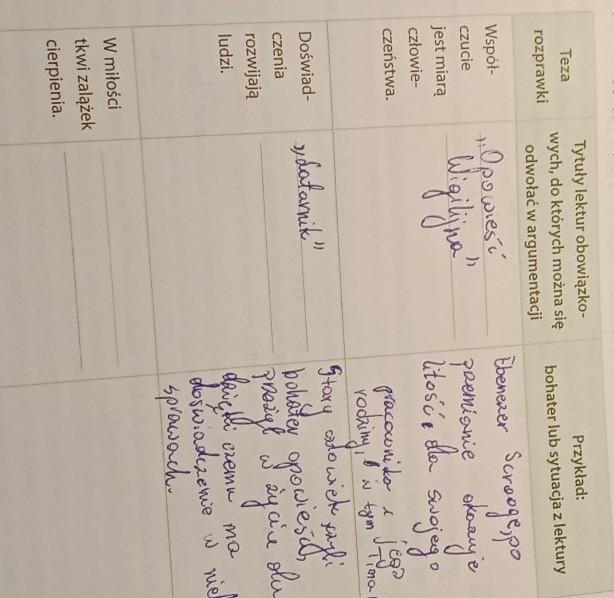 Teza
rozprawki
Tytuły lektur obowiązko-
wych, do których można się
odwołać w argumentacji
Przykład:
bohater lub sytuacja z lektury
Współ-
czucie
jest miarą
człowie-
czeństwa.
„Opowieść
Wigilijna"
Ebenezer Scrooge, po
przemianie okazuje
litość dla swojego
pracownika i jego
rodziny, w tym Tima
Doświad-
czenia
rozwijają
ludzi.
„Latarnik"
Stary człowiek czyli
bohater opowieści,
przeżył w życiu
dzięki czemu ma
doświadczenie w
sprawach.
W miłości
tkwi zalążek
cierpienia.